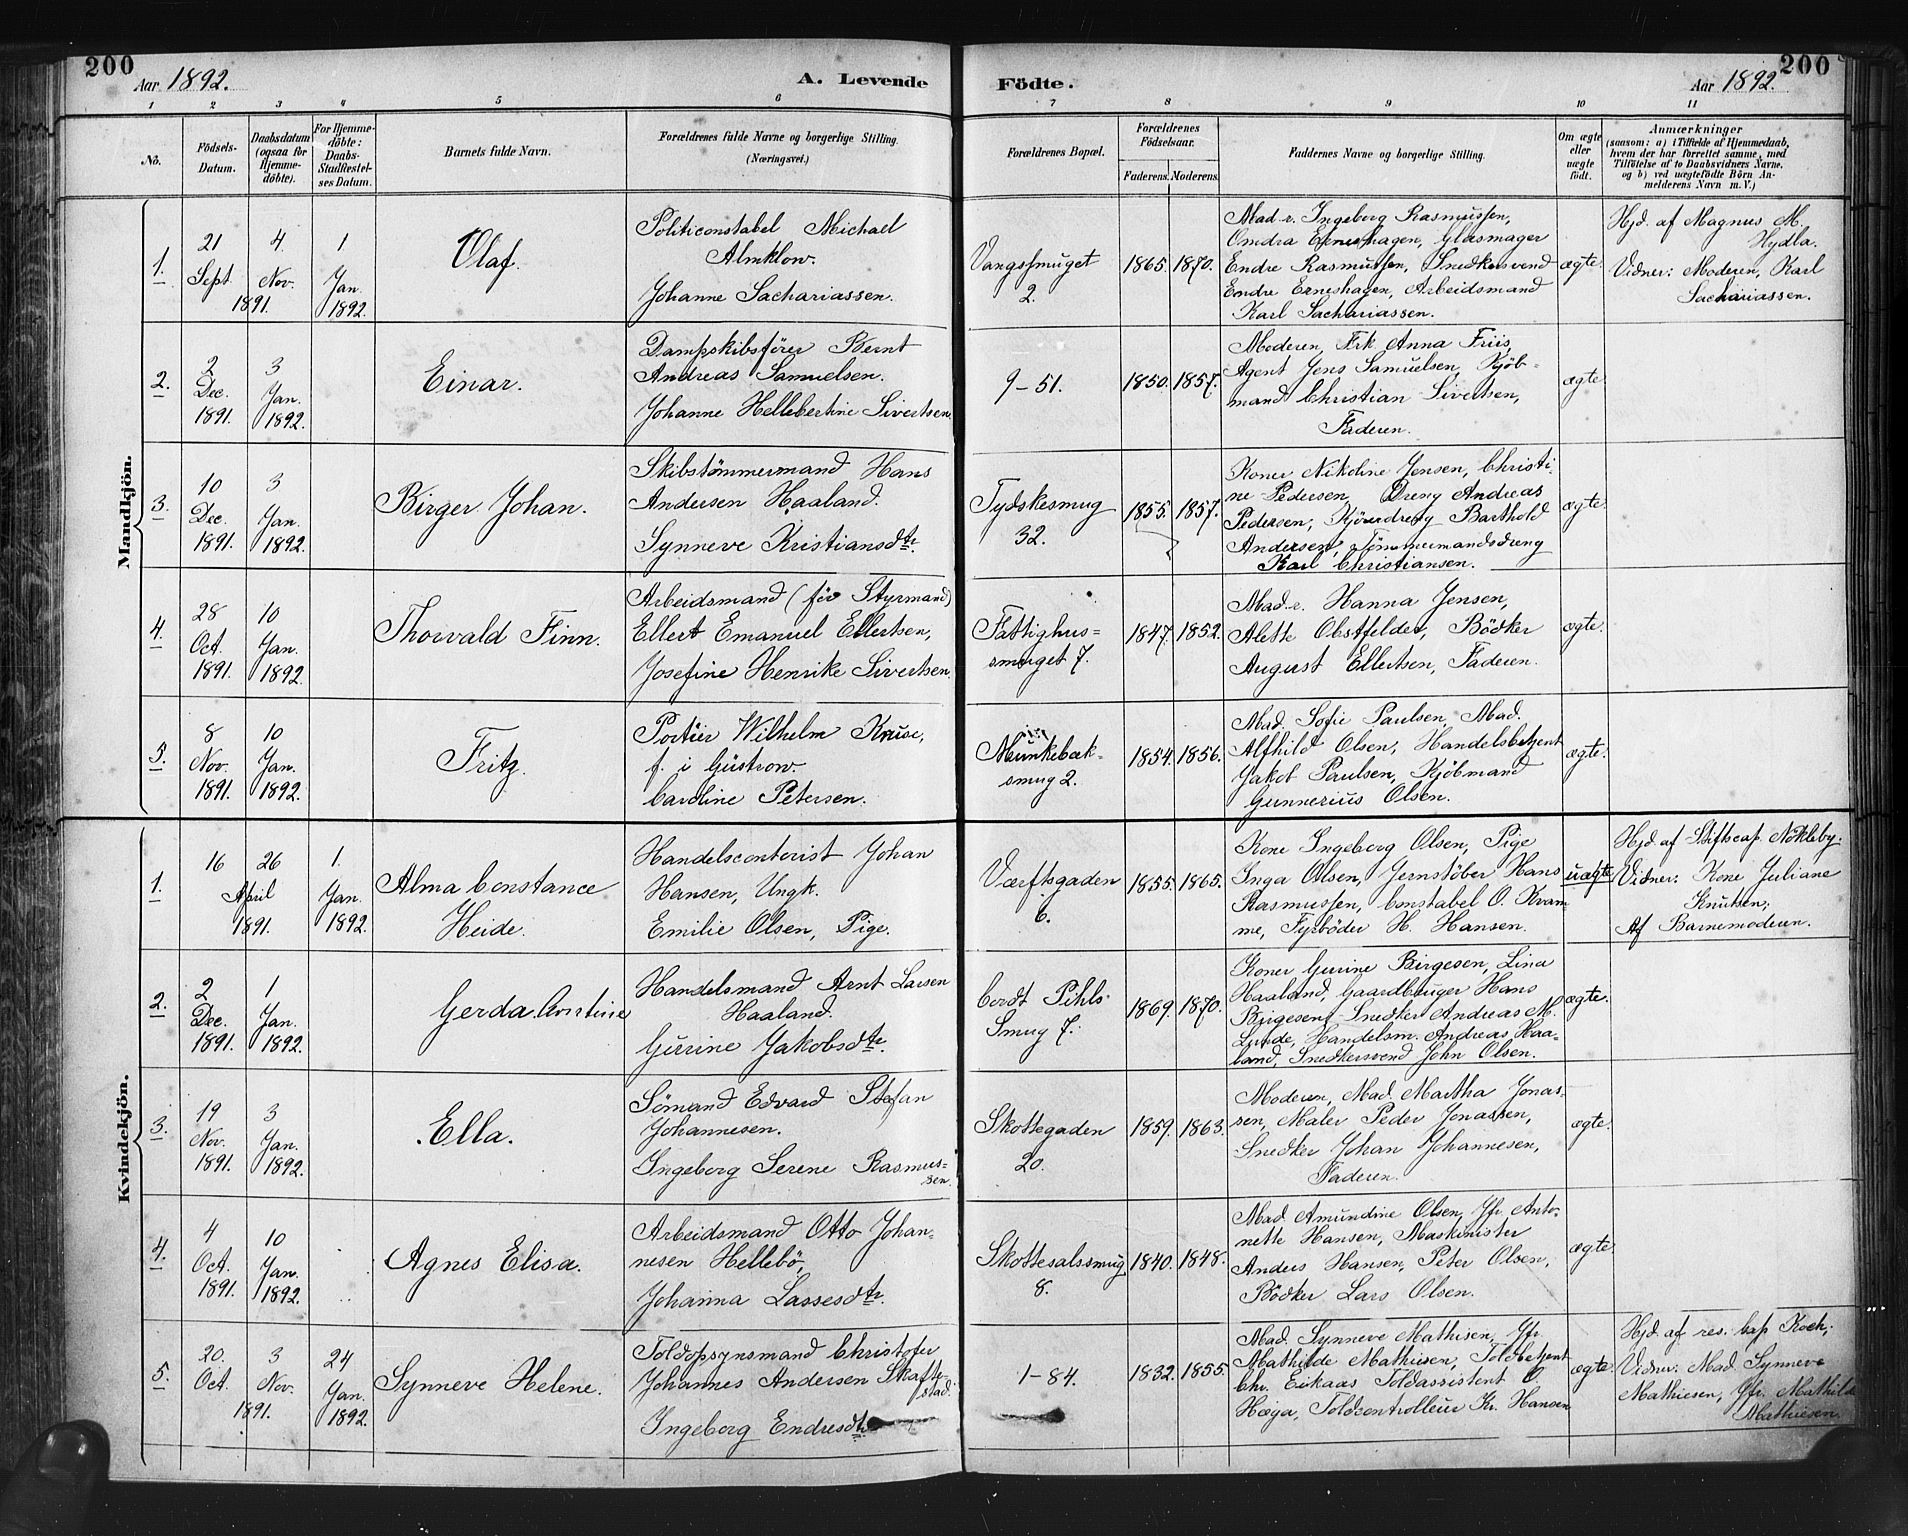 200
Aar 1892.
A. Levende
Födte.
Aar 1892.
200
1 2 3 4 5 6 7 8 9 10 11
No.
Födsels-
Datum.
Daabsdatum
(ogsaa for
Hjemme-
döbte).
For Hjemme-
döbte:
Daabs-
Stadfæstel-
ses Datum.
Barnets fulde Navn.
Forældrenes fulde Navne og borgerlige Stilling.
(Næringsvei.)
Forældrenes Bopæl.
Forældrenes
Födselsaar.
Faderens. Moderens.
Faddernes Navne og borgerlige Stilling.
Om ægte
eller
uægte
födt.
Anmærkninger
(saasom: a) i Tilfælde af Hjemmedaab,
hvem der har forrettet samme, med
Tilföielse af to Daabsvidners Navne,
og b) ved uægtefödte Börn An-
melderens Navn m. V.)
Mandkjön.
1.
21
Sept.
4.
Nov.
1891.
1
Jan.
1892.
Olaf.
Politiconstabel Michael
Almklow.
Johanne Sachariassen.
Vangssmuget
2.
1865. 1870.
Mad-r. Ingeborg Rasmussen,
Omdra Erneshagen, Glasmager
Endre Rasmussen, Snedkersvend
Endre Erneshagen, Arbeidsmand
Karl Sachariassen.
ægte.
Hjd. af Magnus M.
Hydla.
Vidner: Moderen, Karl
Sachariassen.
2.
2
Dec.
1891.
3
Jan.
1892.
Einar.
Dampskibsförer Bernt
Andreas Samuelsen.
Johanne Hellebertine Sivertsen
9-51.
1850. 1857.
Moderen, Frk Anna Friis,
Agent Jens Samuelsen, Kjöb-
mand Christian Sivertsen,
Faderen.
ægte.
3.
10
Dec.
1891.
3
Jan.
1892.
Birger Johan.
Skibstömmermand Hans
Andersen Haaland.
Synneve Kristiansdtr.
Tydskesmug
32.
1855. 1857.
Koner Nikoline Jensen, Christi-
ne Pedersen, Dreng Andreas
Pedersen, Kjöredreng Barthold
Andersen, Tömmermandsdreng
Karl Christiansen.
ægte.
4.
28
Oct.
1891.
10
Jan.
1892.
Thorvald Finn.
Arbeidsmand (för Styrmand)
Ellert Emanuel Ellertsen,
Josefine Henrike Sivertsen.
Fattighus=
smuget 7.
1847. 1852.
Mad-r. Hanna Jensen,
Alette Obstfelder, Bödker
August Ellertsen, Faderen.
ægte.
5.
8
Nov.
1891.
10
Jan.
1892.
Fritz.
Portier Wilhelm Kruse,
f. i Güstrow.
Caroline Petersen.
Munkebæk-
smug 2.
1854. 1856.
Mad. Sofie Paulsen, Mad.
Alfhild Olsen, Handelsbetjent
Jakob Paulsen, Kjöbmand
Gunnerius Olsen.
ægte.
Kvindekjön.
1.
16
26
April
1891.
1.
Jan.
1892.
Alma Constance
Heide.
Handelscontorist Johan
Hansen, Ungk.
Emilie Olsen, Pige.
Værftsgaden
6.
1855. 1865.
Kone Ingeborg Olsen, Pige
Inga Olsen, Jernstöber Hans
Rasmussen, Constabel O. Kvam-
me, Fyrböder H. Hansen.
uægte
Hjd. af Stiftscap. Nökleby.
Vidner: Kone Juliane
Knutsen;
Af Barnemoderen.
2.
2
Dec.
1891.
1
Jan.
1892.
Gerda
Handelsmand Arnt Larsen
Haaland.
Gurine Jakobsdtr.
Cordt Pihls
Smug 7.
1869. 1870.
Koner Gurine Birgesen, Lina
Haaland, Gaardbruger Hans
Birgesen, Snedker Andreas M.
Lunde, Handelsm. Andreas Haa-
land, Snedkersvend John Olsen.
ægte.
3.
19
Nov.
1891.
3
Jan.
1892.
Ella.
Sömand Edvard Stefan
Johannesen.
Ingeborg Serene Rasmus-
sen.
Skottegaden
20.
1859. 1863.
Moderen, Mad. Martha Jonas-
sen, Maler Peder Jonassen,
Snedker Johan Johannesen,
Faderen.
ægte.
4.
4
Oct.
1891.
10
Jan.
1892.
Agnes Elisa.
Arbeidsmand Otto Johan-
nesen Hellebö,
Johanna Lassesdtr.
Skottesalssmug
8.
1840. 1848.
Mad. Amundine Olsen, Jfr. Anto-
nette Hansen, Maskinister
Anders Hansen, Peter Olsen,
Bödker Lars Olsen.
ægte.
5.
20.
Oct.
3
Nov.
1891.
24
Jan.
1892.
Synneve Helene.
Toldopsynsmand Christofer
Johannes Andersen Skafte-
stad.
Ingeborg Endresdtr
1-84.
1832. 1855.
Mad. Synneve Mathisen, Jfr.
Mathilde Mathiesen, Toldbetjent
Chr. Eikaas Toldassistent O.
Hæga, Toldcontrolleur Kr. Hansen
ægte.
Hjd. af res. Cap Koch;
Vidner: Mad. Synneve
Mathiesen, Jfr. Mathilde
Mathiesen.